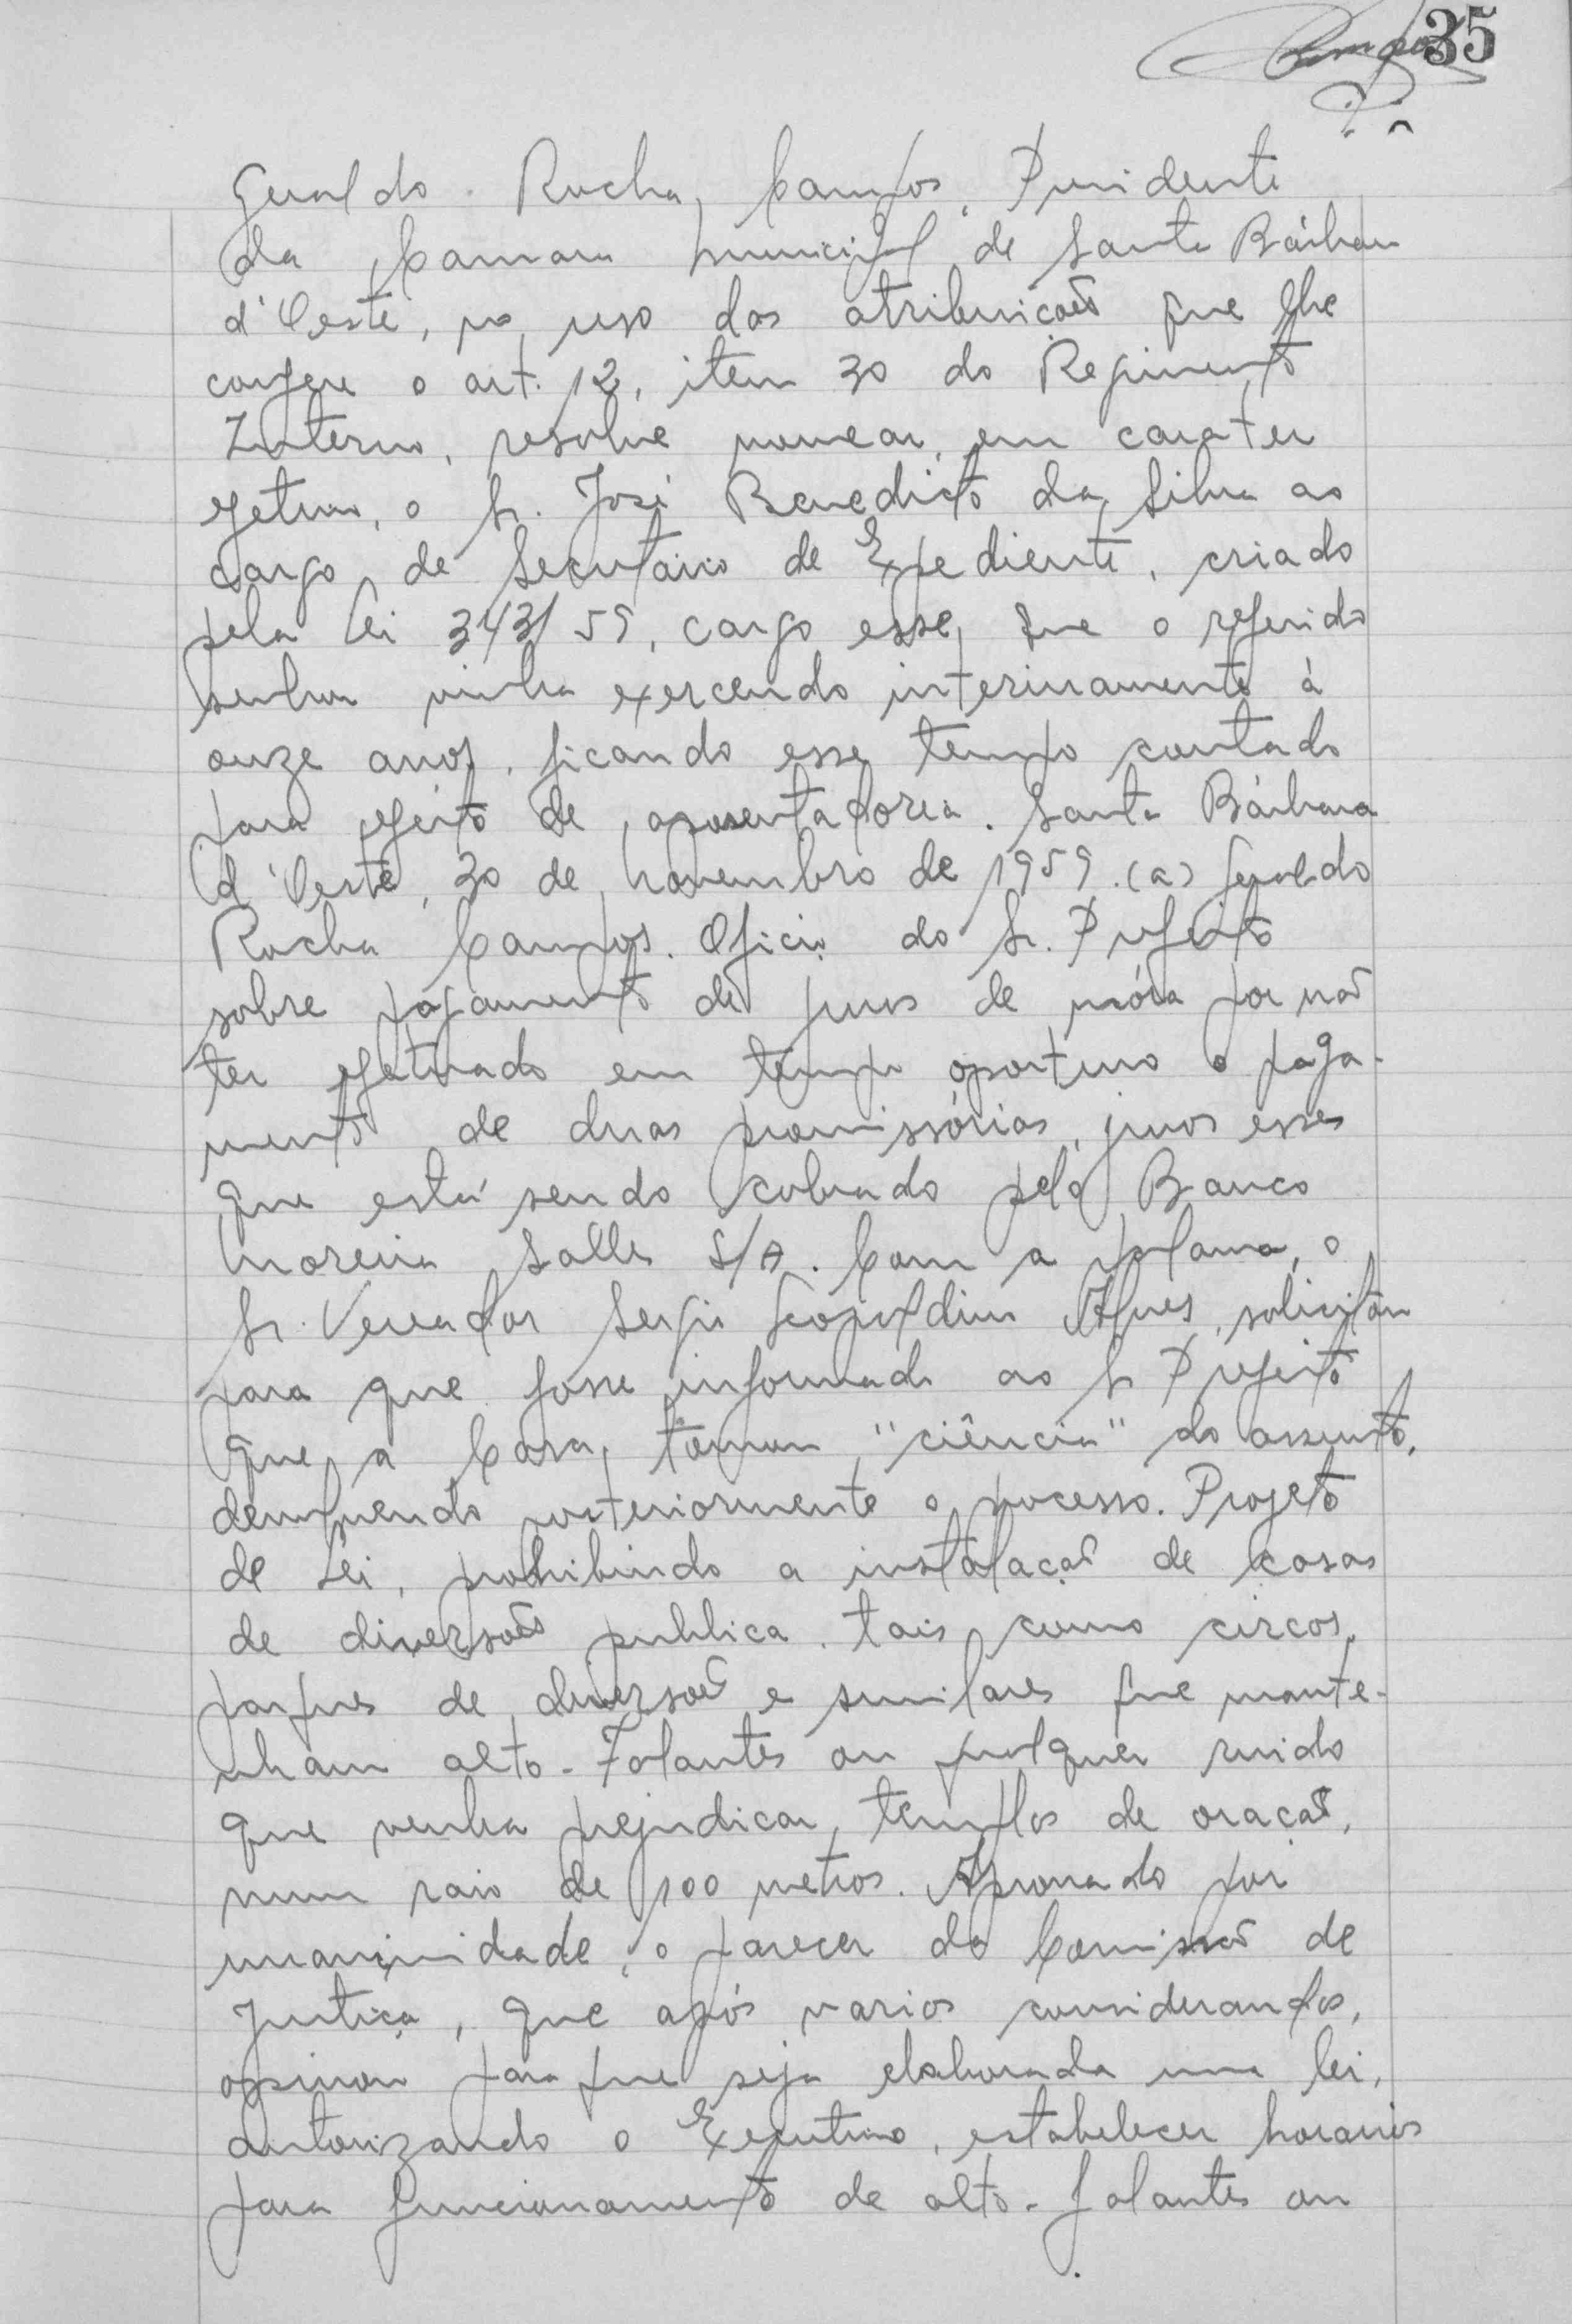 35
Geraldo Rocha Campos, Presidente
da Camara Municipal de Santa Bárbara
d'Oeste, no uso das atribuições que lhe
confere o art. 12, item 30 do Regimento
Interno, resolve nomear, em carater
efetivo, o Sr. José Benedicto da Silva ao
cargo de Secretário de Expediente, criado
pela Lei 343/59, cargo esse, que o referido
senhor vinha exercendo interinamente à
onze anos, ficando esse tempo contado
para efeito de aposentadoria. Santa Bárbara
d'Oeste, 30 de novembro de 1959. (a) Geraldo
Rocha Campos. Oficio do Sr. Prefeito
sobre pagamento de juros de móra por não
ter efetuado em tempo oportuno o paga-
mento de duas promissórias, juros esses
que está sendo cobrado pelo Banco
Moreira Salles S/A. Com a palavra, o
Sr. Vereador Sergio Leopoldino Alves, solicitou
para que fosse informado ao Sr Prefeito
que a Casa, tomou "ciência" do assunto,
devolvendo posteriormente o processo. Projeto
de Lei, prohibindo a instalação de casas
de diversões publica, tais como circos,
parques de diversões e similares que mante-
nham alto-Falantes ou qualquer ruido
que venha prejudicar, templos de oração,
num raio de 100 metros. Aprovado por
unanimidade, o parecer da Comissão de
Justiça, que após varios considerandos,
opinou para que seja elaborada uma lei,
autorizando o Executivo, estabelecer horarios
para funcionamento de alto-falantes ou